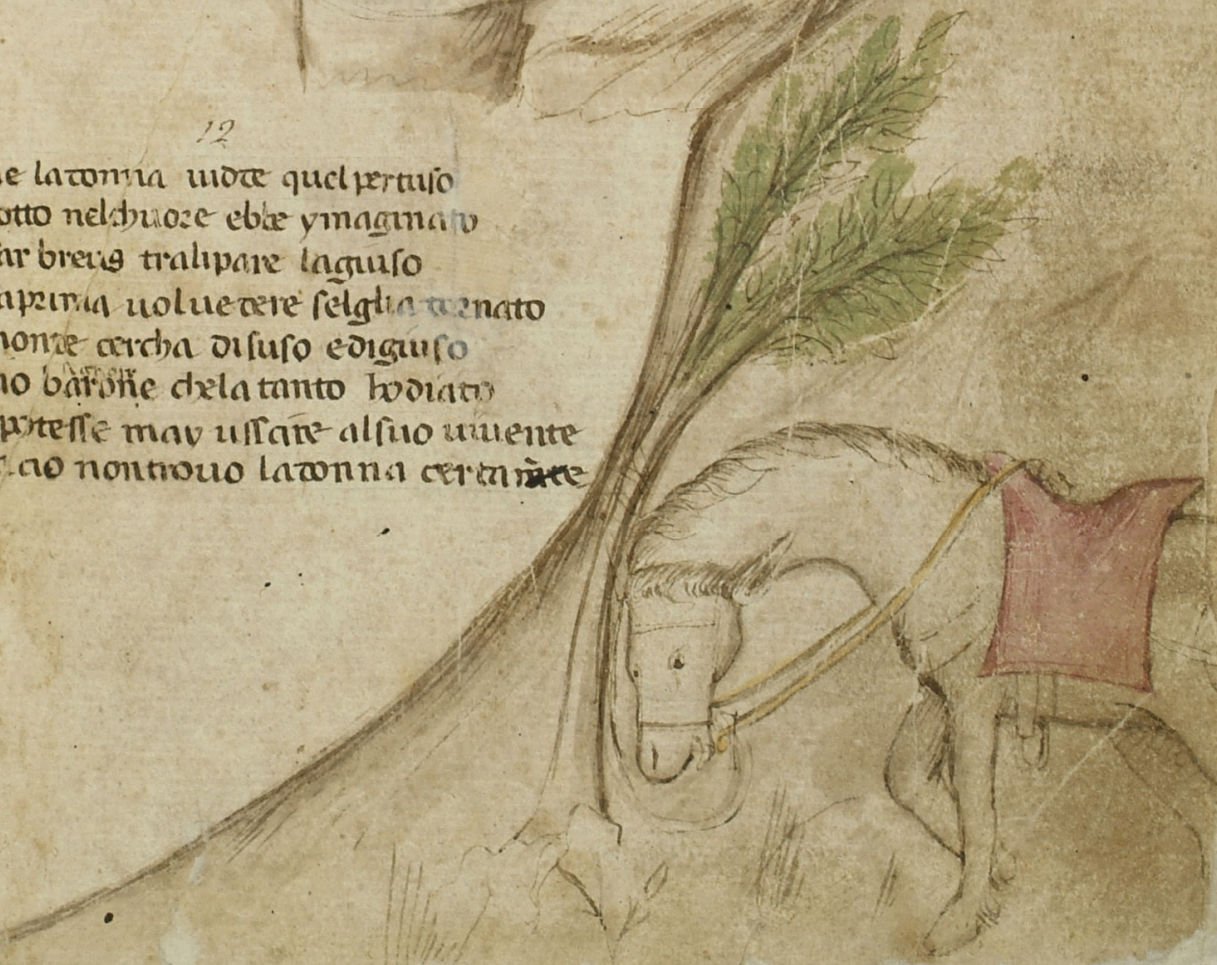 12
e latonna uidte quel pertuso
otto nelchuore ebbe ymaginato
ar breus tralipare laguiso
aprima uoluetere selglia tornato
onte cercha disuso ediguiso
no barone chela tanto hodiato
potesse may usscire alsuo uiuente
cio nontrouo latonna certamte